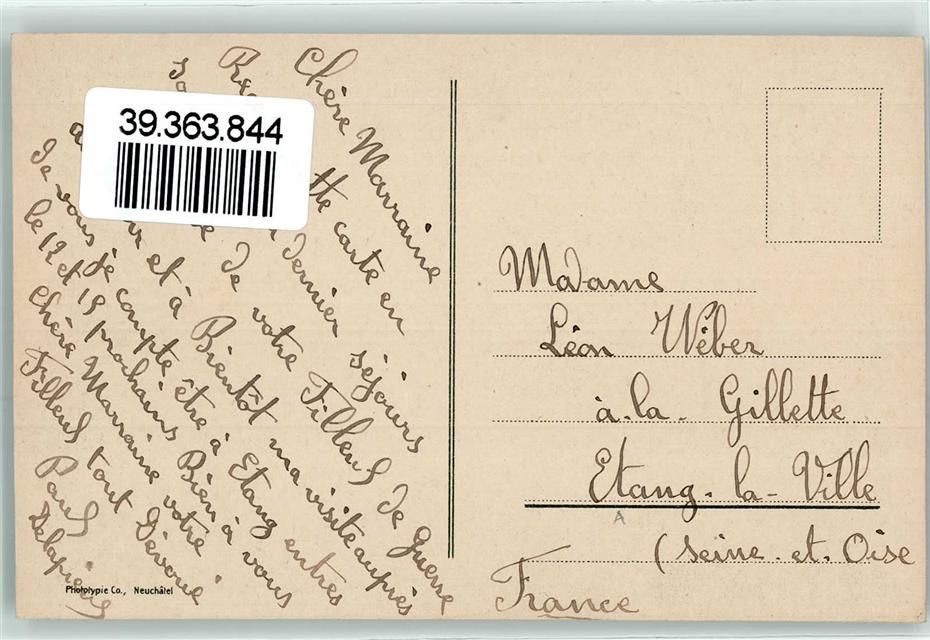 39.363.844
Chère Marraine
tte carte en
dernier séjours
de votre Filleul de Guerre
et à Bientôt ma visite auprès
de vous je compte être à Etang entres
le 12 et 15 prochains Bien à vous
Chère Marraine votre
Filleul tout Dévoué
Paul
Phototypie Co., Neuchâtel
Madame
Léon Wéber
à.la. Gillette
Etang-la-Ville
(Seine.et.Oise
France